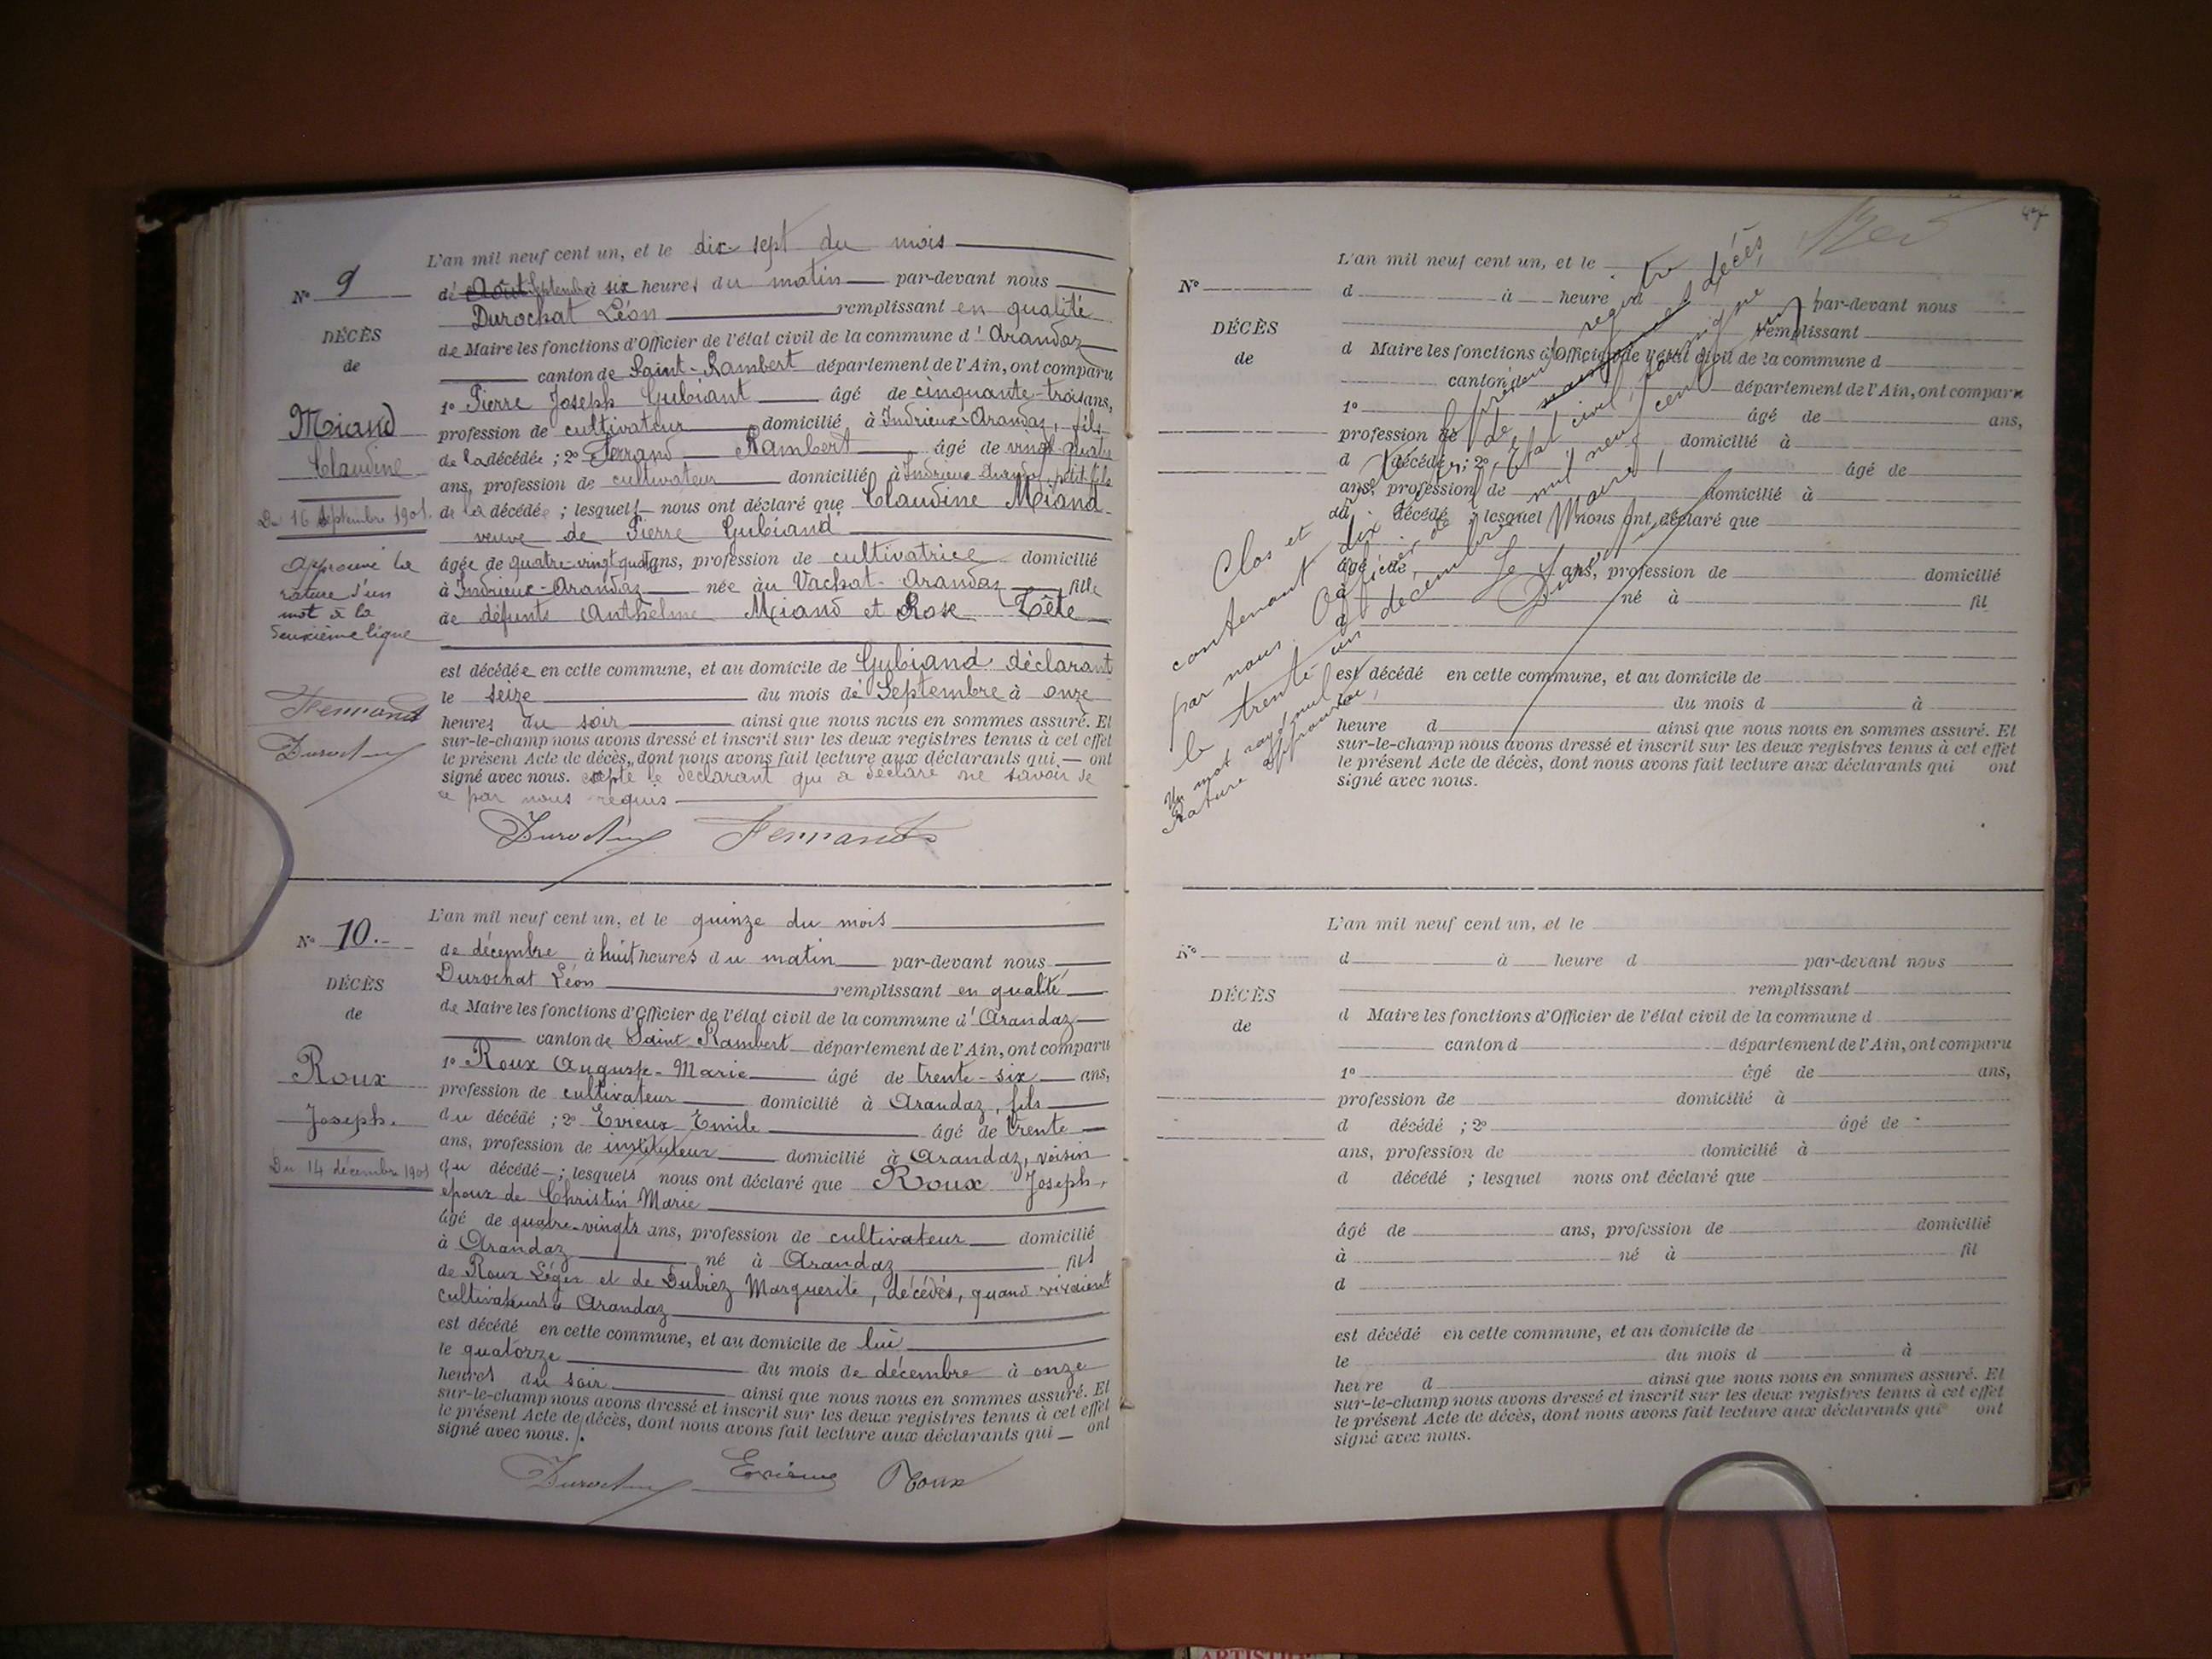 N° 9
DÉCÈS
de
Miand
Claudine
Du 16 Septembre 1901.
Approuvé la
rature d'un
mot à la
deuxième ligne
Ferrand
L'an mil neuf cent un, et le dix-sept du mois
de Août Septembre à six heures du matin par-devant nous
Durochat Léon remplissant en qualité
de Maire les fonctions d'Officier de l'état civil de la commune d'Arandaz
canton de Saint-Rambert département de l'Ain, ont comparu
1° Pierre Joseph Gubiant âgé de cinquante-trois ans,
profession de cultivateur domicilié à Indrieux-Arandaz, fils
de la décédée ; 2° Ferrand Rambert âgé de vingt-quatre
ans, profession de cultivateur domicilié à Indrieux Arandaz, petit-fils
de la décédée ; lesquels nous ont déclaré que Claudine Miand
veuve de Pierre Gubiand
âgée de quatre-vingt-quatre ans, profession de cultivatrice domicilié
à Indrieux-Arandaz née au Vachat-Arandaz fille
de défunts Anthelme Miand et Rose Tête
est décédée en cette commune, et au domicile de Gubiand déclarant
le seize du mois de Septembre à onze
heures du soir ainsi que nous nous en sommes assuré. Et
sur-le-champ nous avons dressé et inscrit sur les deux registres tenus à cet effet
le présent Acte de décès, dont nous avons fait lecture aux déclarants qui ont
signé avec nous. cepté le déclarant qui a déclaré ne savoir le
ce par nous requis
Ferrand
N° 10.
DÉCÈS
de
Roux
Joseph.
Du 14 décembre 1901
L'an mil neuf cent un, et le quinze du mois
de décembre à huit heures du matin par-devant nous
Durochat Léon remplissant en qualité
de Maire les fonctions d'Officier de l'état civil de la commune d'Arandaz
canton de Saint Rambert département de l'Ain, ont comparu
1° Roux Auguste-Marie âgé de trente-six ans,
profession de cultivateur domicilié à Arandaz, fils
du décédé ; 2° Evieux Emile âgé de trente
ans, profession de instituteur domicilié à Arandaz, voisin
du décédé ; lesquels nous ont déclaré que Roux Joseph,
époux de Christin Marie
âgé de quatre-vingts ans, profession de cultivateur domicilié
à Arandaz né à Arandaz fils
de Roux Léger et de Dubiez Marguerite, décédés, quand vivaient
cultivateurs à Arandaz
est décédé en cette commune, et au domicile de lui
le quatorze du mois de décembre à onze
heures du soir ainsi que nous nous en sommes assuré. Et
sur-le-champ nous avons dressé et inscrit sur les deux registres tenus à cet effet
le présent Acte de décès, dont nous avons fait lecture aux déclarants qui ont
signé avec nous.
Evieux Roux
47
N°
DÉCÈS
de
L'an mil neuf cent un, et le
d à heure d par-devant nous
remplissant
d Maire les fonctions d'Officier de l'état civil de la commune d
canton d département de l'Ain, ont comparu
1° âgé de ans,
profession de domicilié à
d décédé ; 2° âgé de
ans, profession de domicilié à
d décédé ; lesquel nous ont déclaré que
âgé de ans, profession de domicilié
à né à fil
d
est décédé en cette commune, et au domicile de
le du mois d à
heure d ainsi que nous nous en sommes assuré. Et
sur-le-champ nous avons dressé et inscrit sur les deux registres tenus à cet effet
le présent Acte de décès, dont nous avons fait lecture aux déclarants qui ont
signé avec nous.
Clos et le présent registre
contenant dix de décès,
par nous Officier de l'Etat civil, soussigné
le trente-un décembre mil neuf cent un
Le Maire,
Un mot rayé nul
Rature approuvée,
N°
DÉCÈS
de
L'an mil neuf cent un, et le
d à heure d par-devant nous
remplissant
d Maire les fonctions d'Officier de l'état civil de la commune d
canton d département de l'Ain, ont comparu
1° âgé de ans,
profession de domicilié à
d décédé ; 2° âgé de
ans, profession de domicilié à
d décédé ; lesquel nous ont déclaré que
âgé de ans, profession de domicilié
à né à fil
d
est décédé en cette commune, et au domicile de
le du mois d à
heure d ainsi que nous nous en sommes assuré. Et
sur-le-champ nous avons dressé et inscrit sur les deux registres tenus à cet effet
le présent Acte de décès, dont nous avons fait lecture aux déclarants qui ont
signé avec nous.